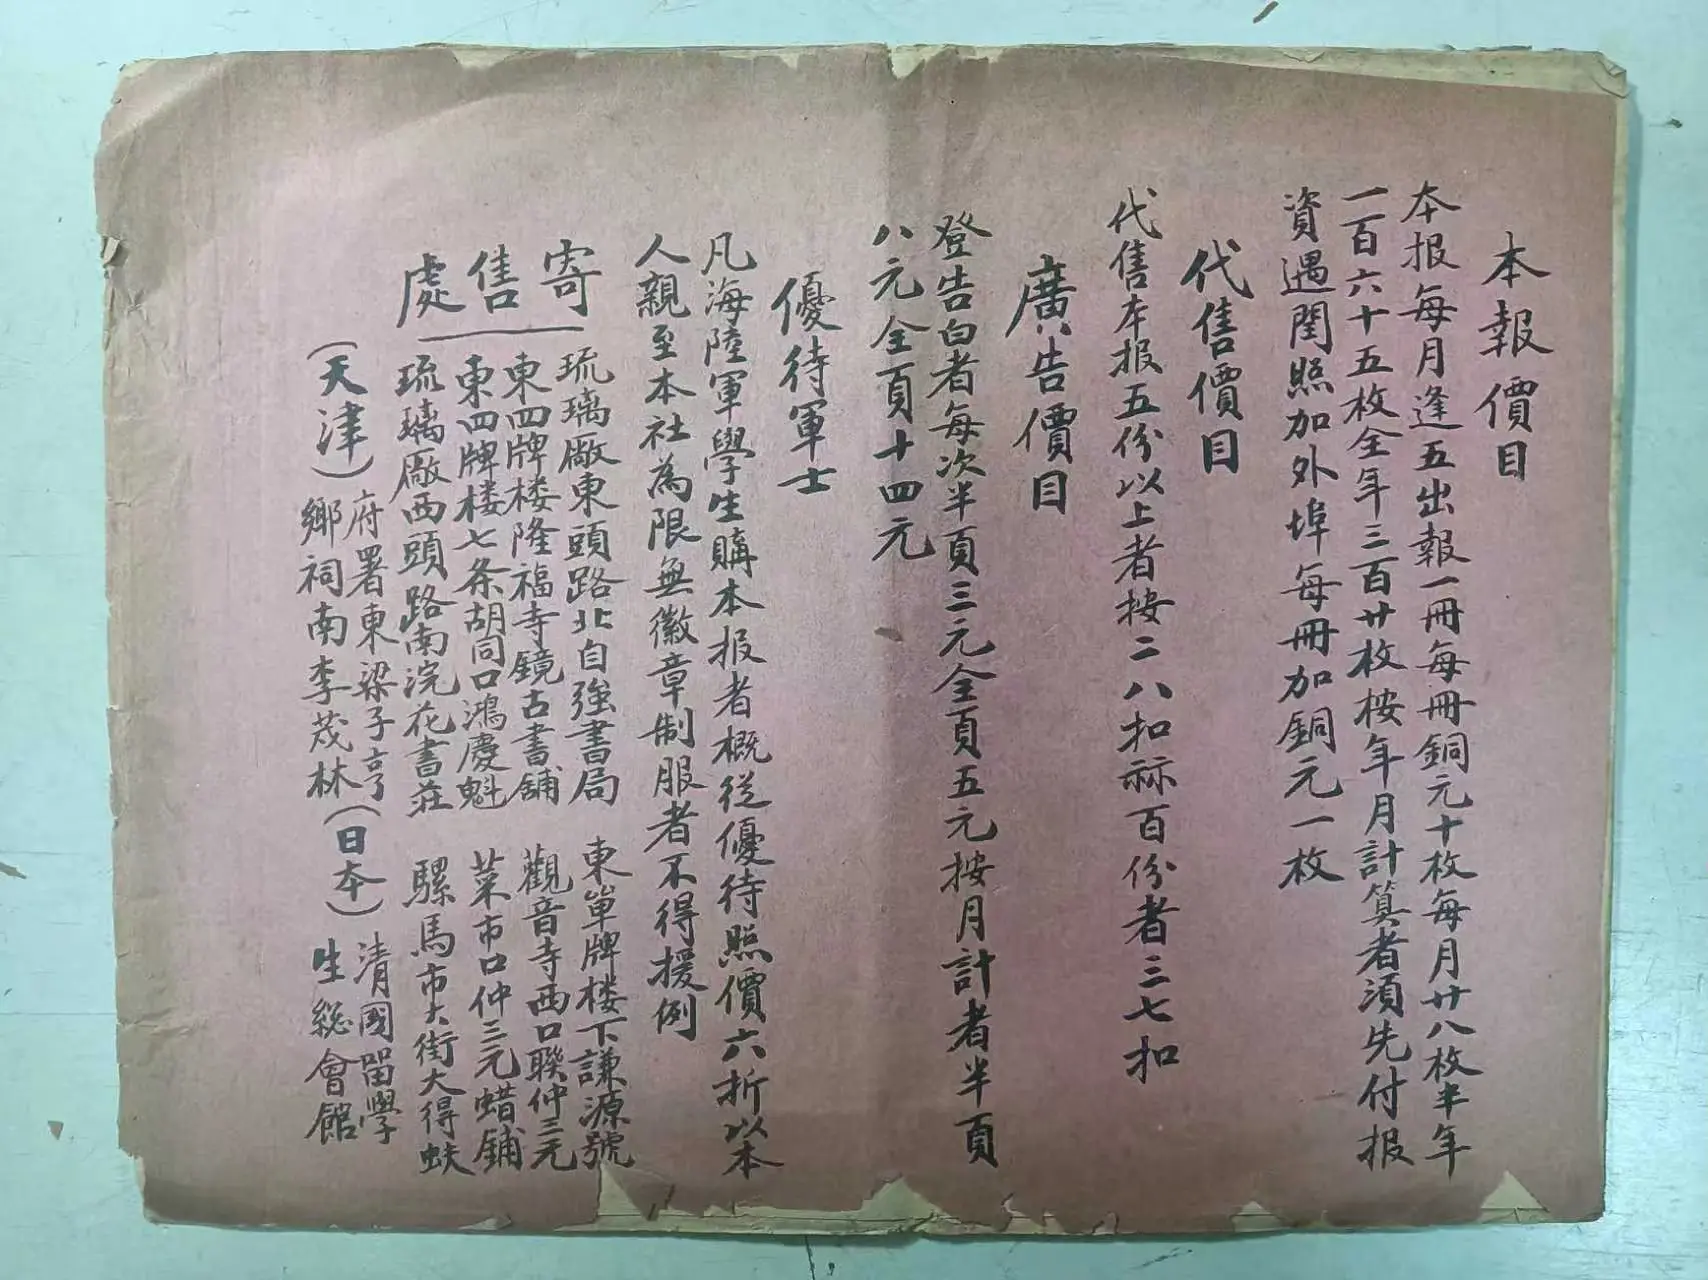 本報價目
本报每月逢五出報一冊每冊銅元十枚每月廿八枚半年
一百六十五枚全年三百廿枚按年月計算者須先付报
資遇閏照加外埠每冊加銅元一枚
代售價目
代售本报五份以上者按二八扣 百份者三七扣
廣告價目
登告白者每次半頁三元全頁五元按月計者半頁
八元全頁十四元
優待軍士
凡海陸軍學生購本报者概從優待照價六折以本
人親至本社為限無徽章制服者不得援例
寄售處
琉璃厰東頭路北自強書局 東單牌楼下謙源號
東四牌楼隆福寺鏡古書舖 觀音寺西口聯仲三元
東四牌楼七条胡同口鴻慶魁 菜市口仲三元蜡鋪
琉璃厰西頭路南浣花書莊 騾馬市大街大得蚨
(天津)府署東梁子亨
鄉祠南李茂林
(日本)清國留學
生総會館